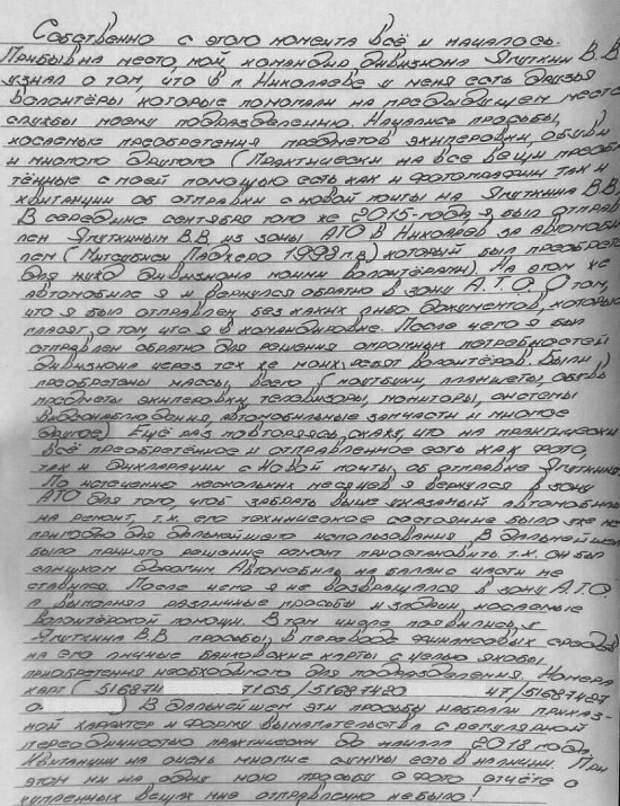 Собственно с этого момента всё и началось.
Прибыв на место, мой командир дивизиона Ягуткин В.В
узнал о том, что в г. Николаеве у меня есть друзья
волонтёры которые помогали на предыдущем месте
службы моему подразделению. Начались просьбы,
косаемые преобретения предметов экиперовки, обуви
и многого другого (Практически на все вещи преобре-
тённые с моей помощью есть как и фотографии так и
квитанции об отправки с новой почты на Ягуткина В.В.
В середине сентября того же 2015-года я, был отправ-
лен Ягуткиным В.В. из зоны АТО в Николаев за автомоби-
лем (Митсубиси Паджеро 1998 г.в) который был преобретен
для нужд дивизиона моими волонтёрами). На этом же
автомобиле я и вернулся обратно в зону А.Т.О. О том,
что я был отправлен без каких либо документов, которые
гласят, о том, что я в командировке. После чего я был
отправлен обратно для решения огромных потребностей
дивизиона через тех же моих ребят волонтёров. Были
преобретены массы, всего (ноутбуки, планшеты, обувь
предметы экиперовки, телевизоры, мониторы, системы
видеонаблюдения, автомобильные запчасти и многое
другое) Ещё раз повторяясь, скажу, что на практически
всё преобретённое и отправленное есть как фото,
так и дикларации с Новой почты, об отправке Ягуткину.
По истечению нескольких месяцев я вернулся в зону
АТО для того, чтоб забрать выше указаный автомобиль
на ремонт, т.к. его техническое состояние было уже не
пригодно для дальнейшего использования. В дальнейшем
было принято решение ремонт приостановить т.к. он был
слишком дорогим Автомобиль на баланс части не
ставился. После чего я не возвращался в зону А.Т.О.
а выполнял различные просьбы и задачи, косаемые
волонтёрской помощи. В том числе появились, у
Ягуткина В.В просьбы, в переводе финансовых средств
на его личные банковские карты с целью якобы,
приобретения необходимого для подразделения. Номера
карт (516874 7165/51687420 47/51687427
0 ) В дальнейшем эти просьбы набрали приказ-
ной характер и форму вымагательства с регулярной
переодичностью практически до начала 2018 года.
Квитанции на очень многие суммы есть в наличии. При
этом ни на одну мою просьбу о фото отчёте о
купленных вещах мне отправленно не было!